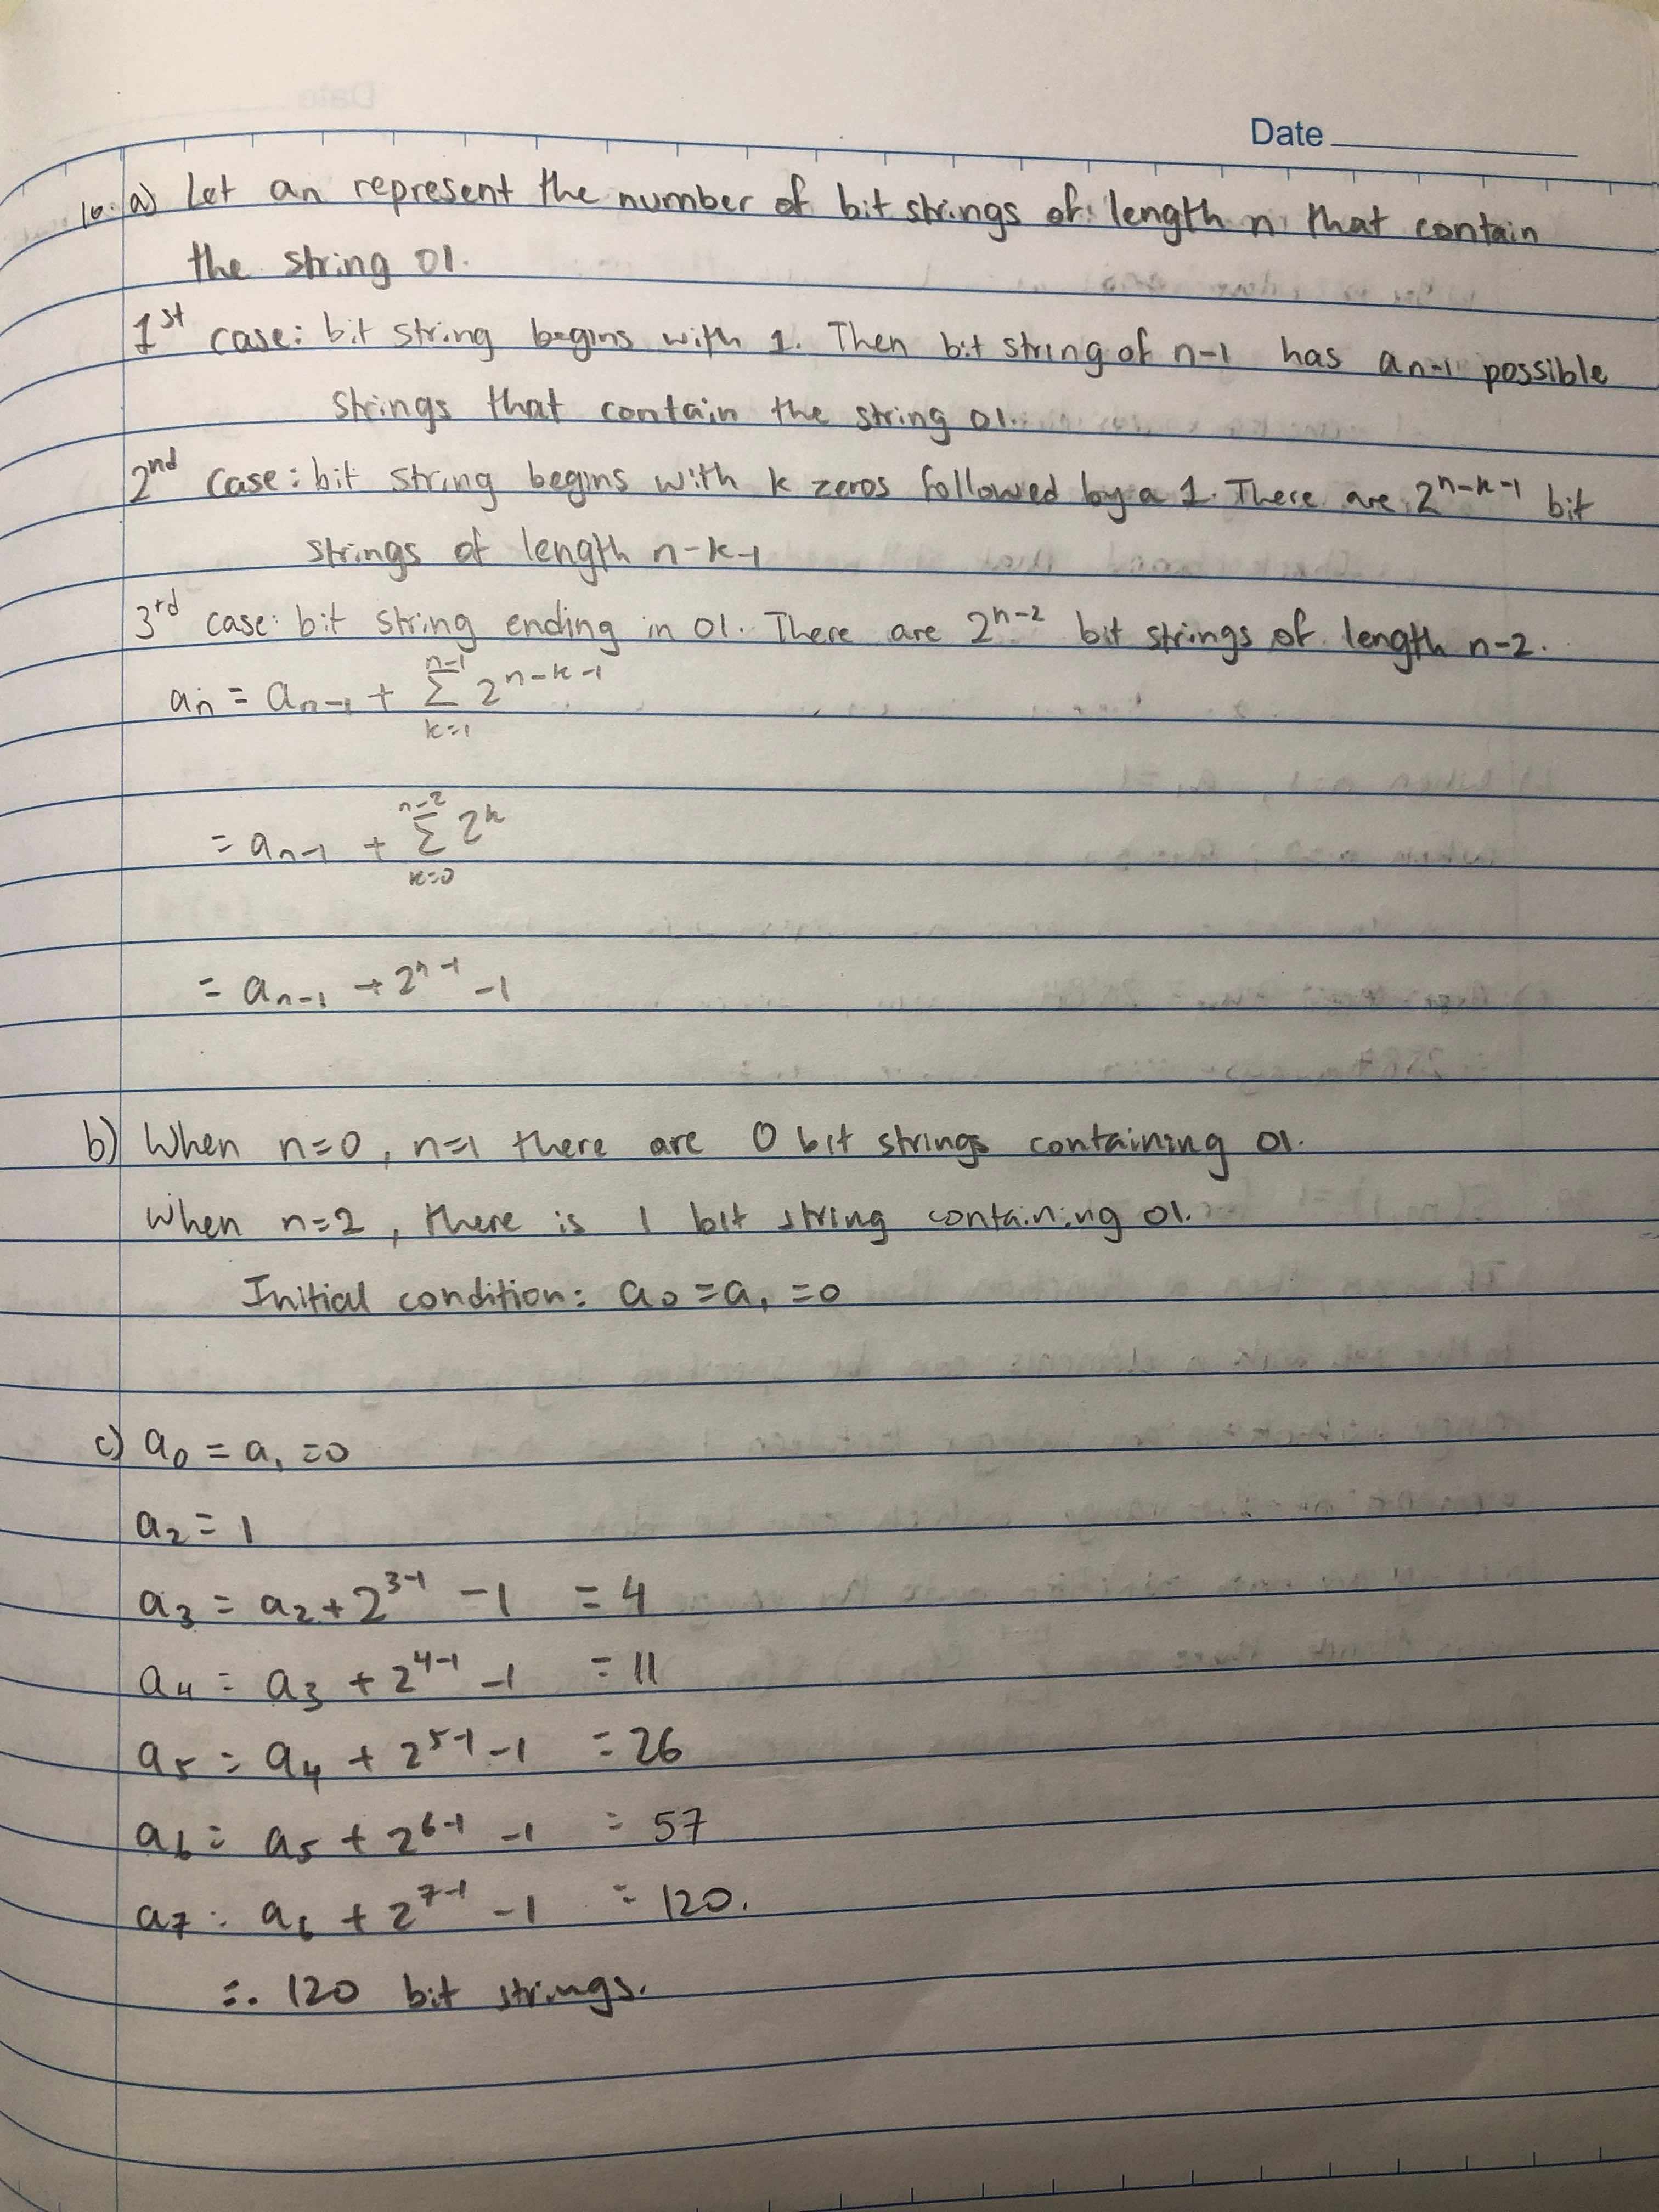 Date
10. a) Let an represent the number of bit strings of length n that contain
the string 01.
1st case: bit string begins with 1. Then bit string of n-1 has an-1 possible
strings that contain the string 01.
2nd case: bit string begins with k zeros followed by a 1. There are 2^n-k-1 bit
strings of length n-k-1
3rd case: bit string ending in 01. There are 2^n-2 bit strings of length n-2.
an = an-1 + Σ_{k=1}^{n-1} 2^n-k-1
= an-1 + Σ_{k=0}^{n-2} 2^k
= an-1 + 2^n-1 - 1
b) When n=0, n=1 there are 0 bit strings containing 01.
When n=2, there is 1 bit string containing 01.
Initial condition: a0 = a1 = 0
c) a0 = a1 = 0
a2 = 1
a3 = a2 + 2^3-1 - 1 = 4
a4 = a3 + 2^4-1 - 1 = 11
a5 = a4 + 2^5-1 - 1 = 26
a6 = a5 + 2^6-1 - 1 = 57
a7 = a6 + 2^7-1 - 1 = 120.
∴ 120 bit strings.